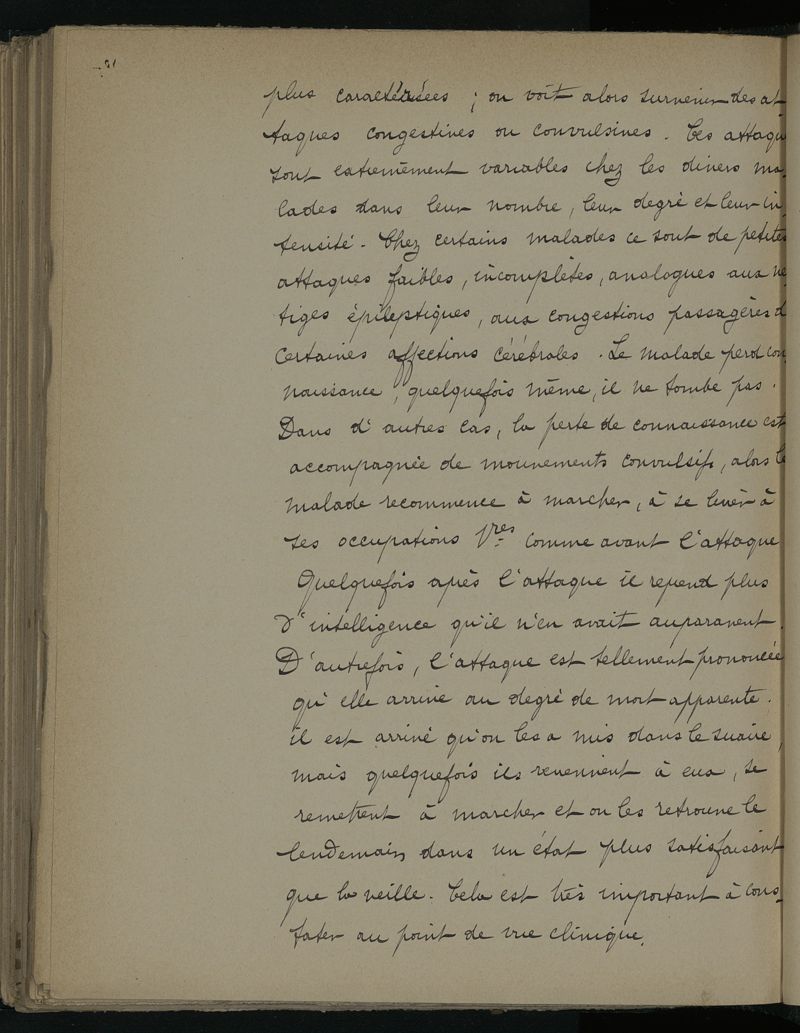 plus caractérisées ; on voit alors survenir des at-
taques congestives ou convulsives. Ces attaqu
sont extrêmement variables chez les divers ma-
lades dans leur nombre, leur degré et leur in-
tensité. Chez certains malades ce sont de petites
attaques faibles, incomplètes, analogues aux ve
tiges épileptiques, aux congestions passagères d
certaines affections cérébrales. Le malade perd con
naissance, quelquefois même, il ne tombe pas.
Dans d'autres cas, la perte de connaissance est
accompagnée de mouvements convulsifs, alors le
malade recommence à marcher, à se livrer à
ses occupations comme avant l'attaque
Quelquefois après l'attaque il reprend plus
d'intelligence qu'il n'en avait auparavent.
D'autrefois, l'attaque est tellement prononcée
qu'elle arrive au degré de mort apparente.
il est arrivé qu'on les a mis dans le suaire,
mais quelquefois ils reviennent à eux, se
remettent à marcher et on les retrouve le
lendemain dans un état plus satisfaisant
que la veille. Cela est très important à cons-
tater au point de vue clinique.